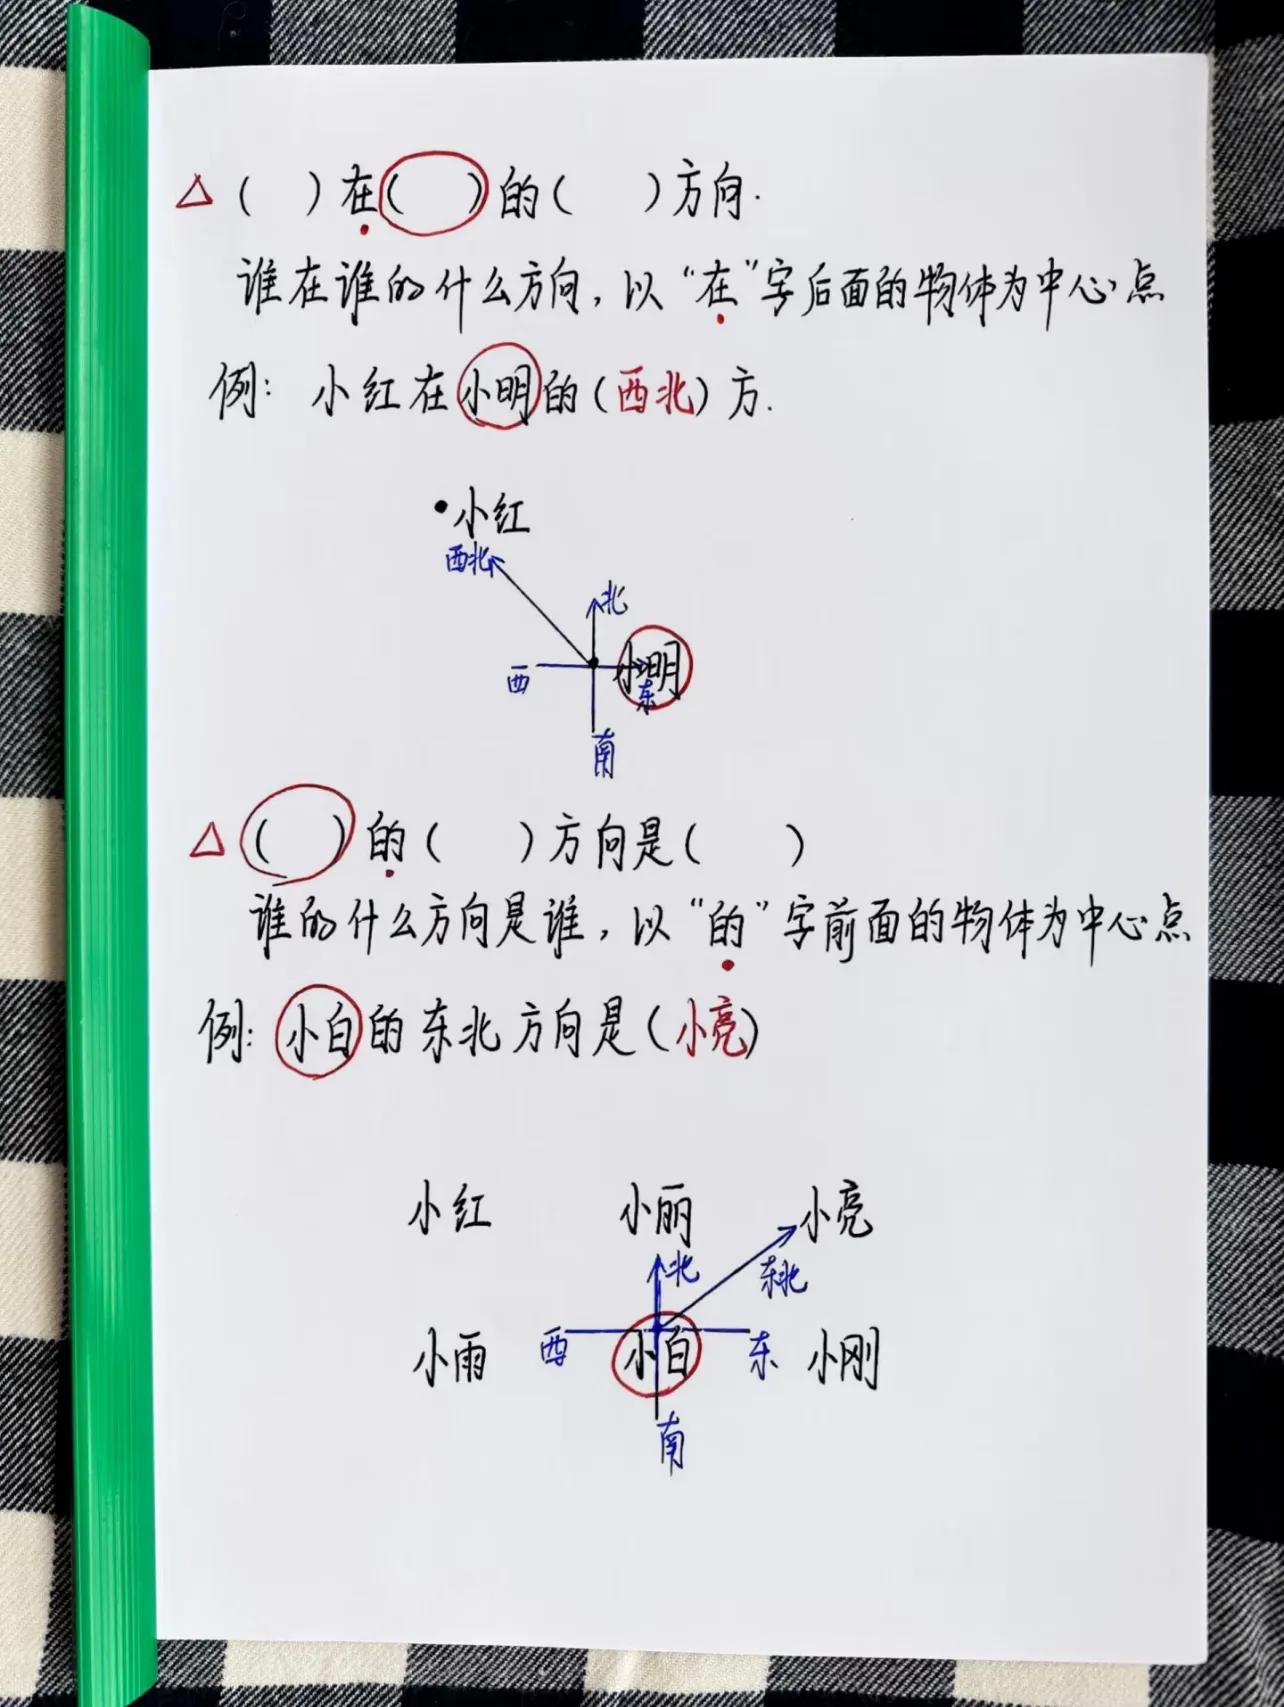 △ ( )在( )的( )方向.
谁在谁的什么方向,以“在”字后面的物体为中心点
例: 小红在小明的(西北)方.
小红
西北
北
西
小明
东
南
△ ( )的( )方向是( )
谁的什么方向是谁,以“的”字前面的物体为中心点
例: 小白的东北方向是(小亮)
小红 小丽 小亮
北 东北
小雨 西 小白 东 小刚
南